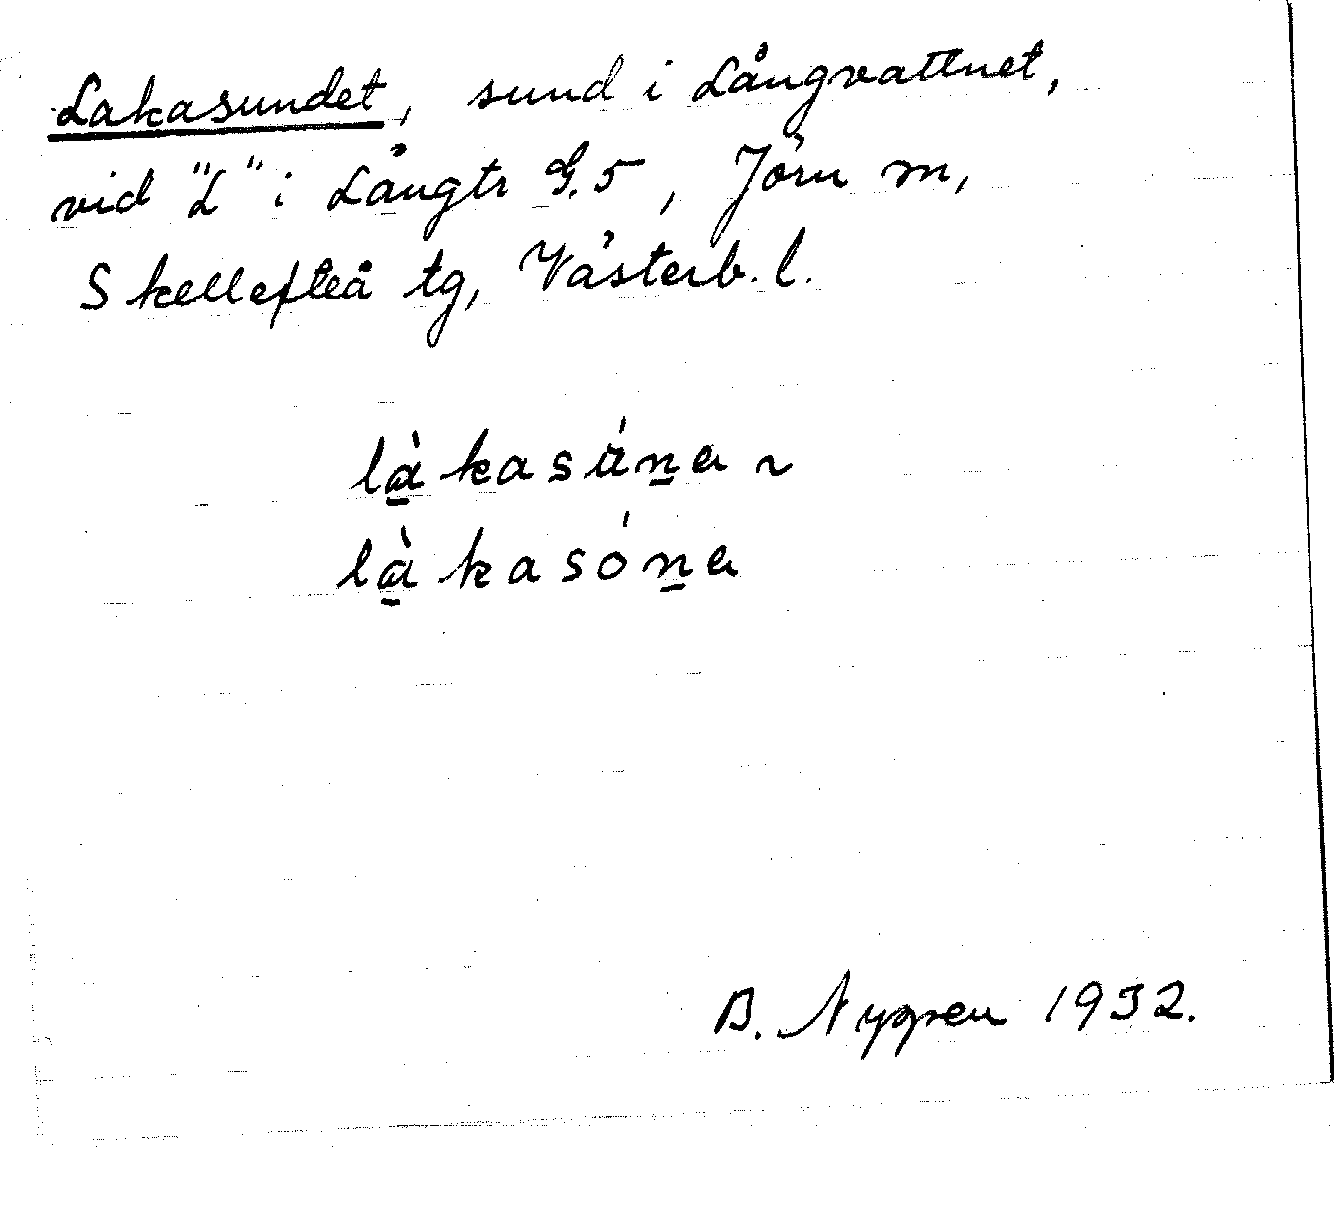 Lakasundet, sund i Långvattnet,
vid "L" i Långtr G.5, Jörn m,
Skellefteå tg, Västerb. l.
là̠kasún̠a ~
là̠kasón̠a
B. Nygren 1932.